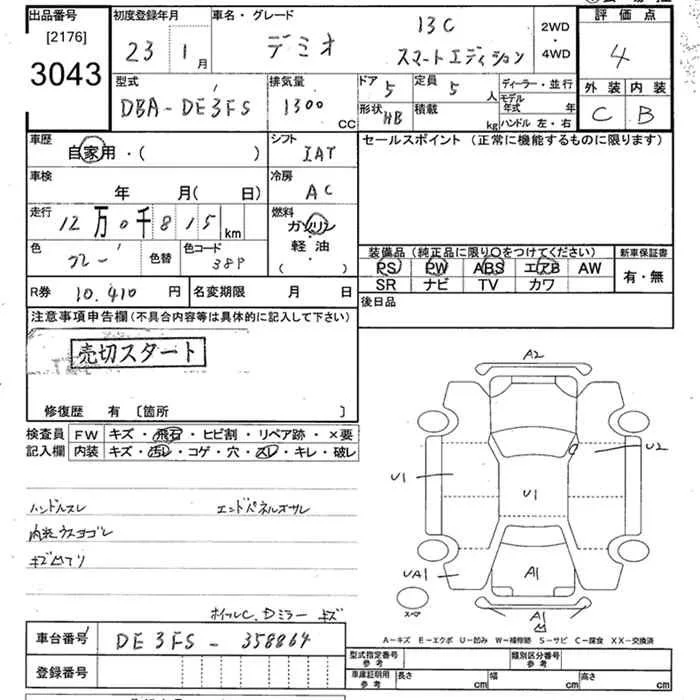 出品番号 初度登録年月 車名・グレード 13C 2WD 評価点
[2176] 23 1月 デミオ スマートエディション ・ 4
3043 4WD
型式 排気量 ドア 定員 ディーラー・並行 外装 内装
DBA-DE3FS 1300 CC 5 5人 モデル年式 年 C B
形状 HB 積載 kg ハンドル 左・右
車歴 自家用・( ) シフト IAT セールスポイント (正常に機能するものに限ります)
車検 年 月( 日) 冷房 AC
走行 12万0千815km 燃料 ガソリン
軽油
( )
色 グレー 色替 色コード 38P
装備品(純正品に限り○をつけてください) 新車保証書
PS PW ABS エアB AW 有・無
SR ナビ TV カワ
R券 10,410 円 名変期限 月 日 後日品
注意事項申告欄(不具合内容等は具体的に記入して下さい)
売切スタート
修復歴 有 [箇所 ]
検査員 FW キズ・飛石・ヒビ割・リペア跡・×要
記入欄 内装 キズ・汚レ・コゲ・穴・スレ・キレ・破レ
ハンドルスレ エンドパネルズサレ
内装ウスヨゴレ
キズ凹アリ
ホイルC、Dミラーキズ
A2
U2
U1
U1
UA1
A1
A1
スペア
A-キズ E-エクボ U-凹み W-補修跡 S-サビ C-腐食 XX-交換済
車台番号 DE3FS-358864
登録番号
型式指定番号 参考 類別区分番号 参考
車庫証明用 参考 長さ cm 幅 cm 高さ cm